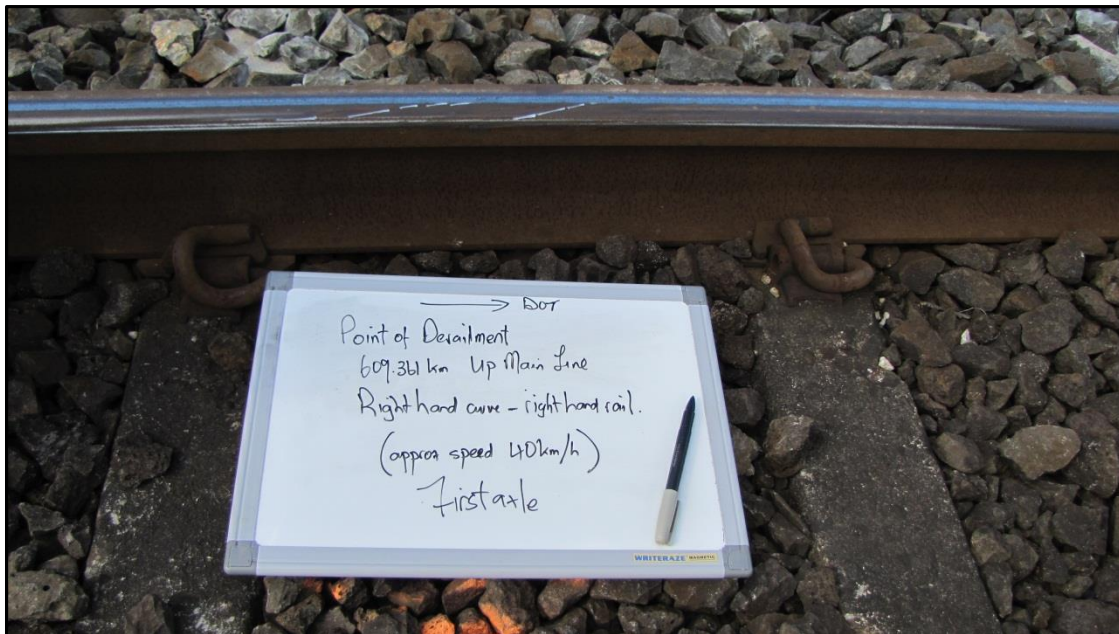 → DOT
Point of Derailment
609.361 km Up Main Line
Right hand curve - right hand rail.
(approx speed 40km/h)
First axle
WRITERAZE MAGNETIC